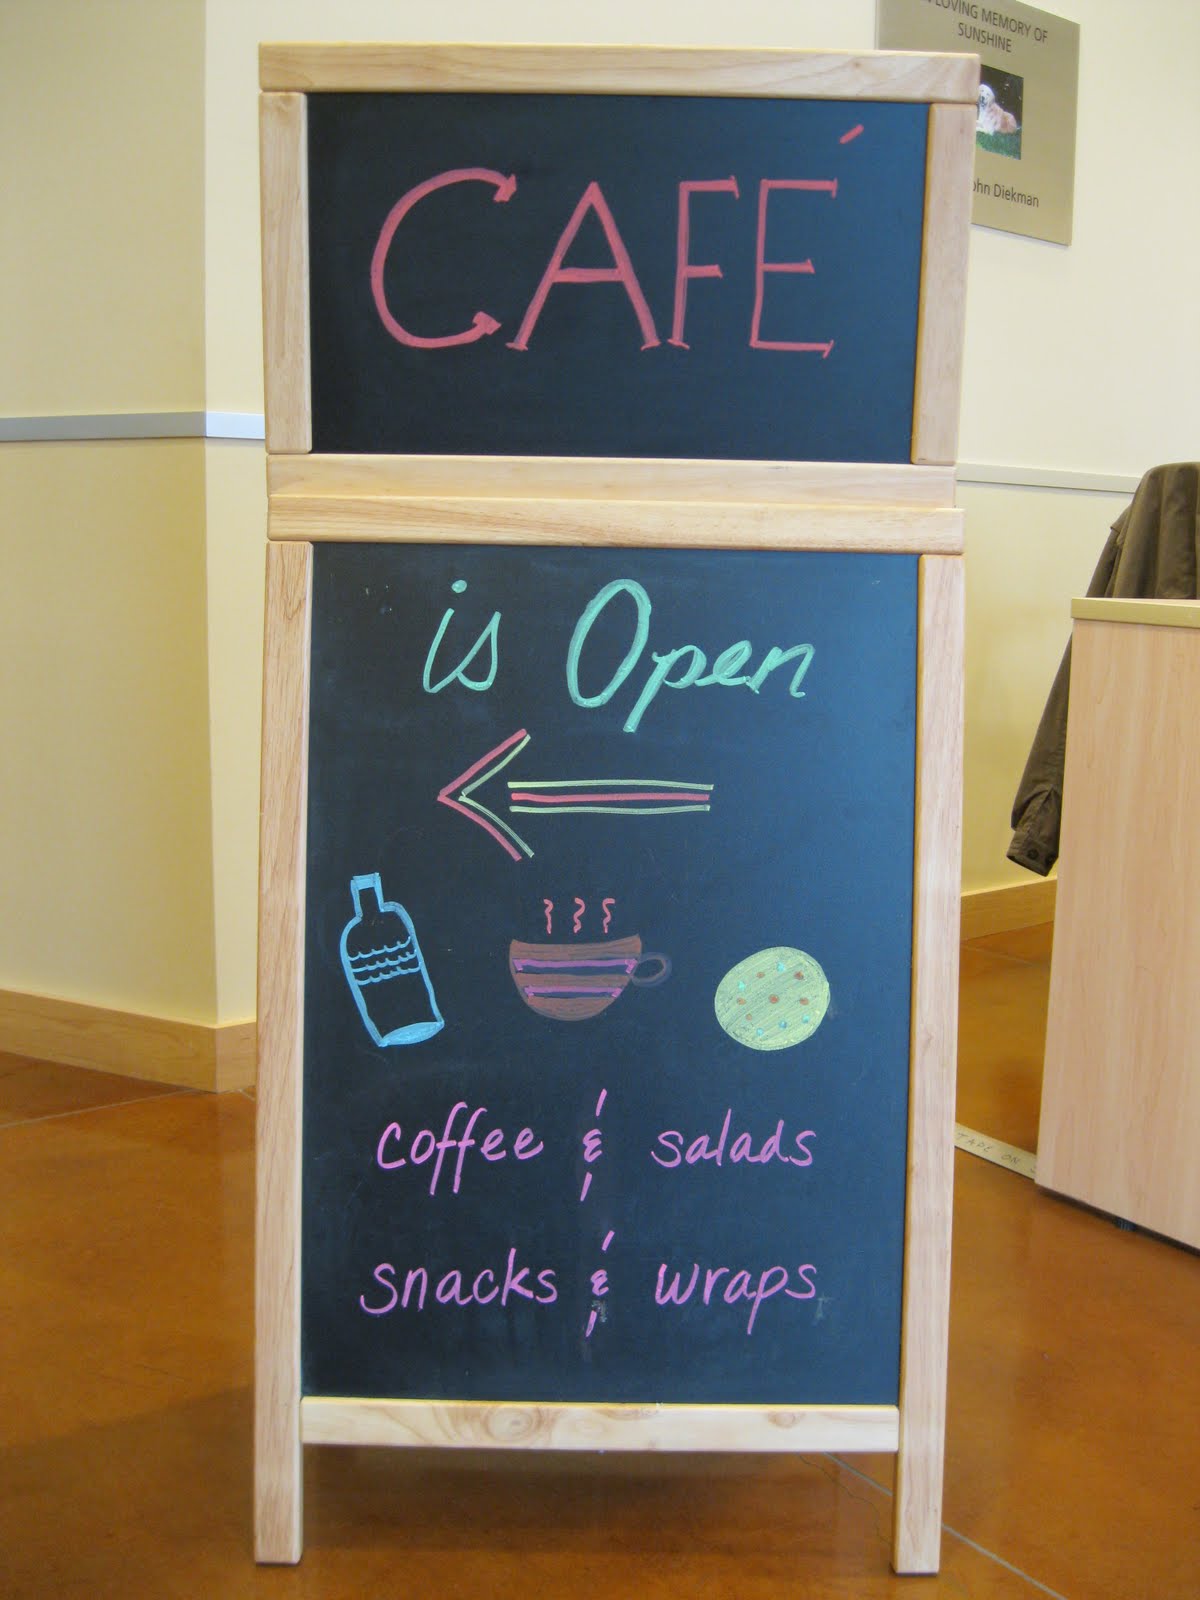 LOVING MEMORY OF
SUNSHINE
Diekman
CAFÉ
is Open
coffee & salads
snacks & wraps
TAPE ON